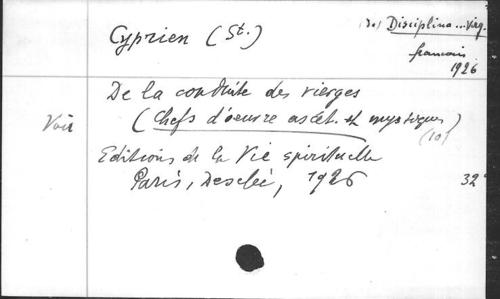 Cyprien (St.)
(De) Disciplina... Virg.
français
1926
De la conduite des vierges
Voir
(Chefs d'oeuvre ascét. et mystiques)
(10)
Editions de la Vie spirituelle
Paris, Desclée, 1926
32°